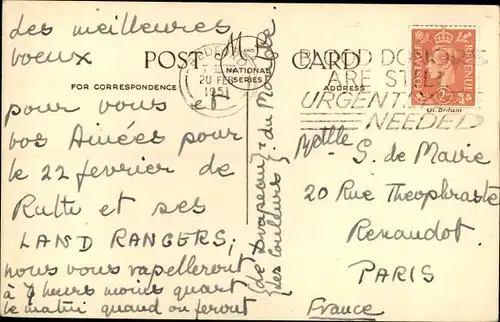 les meilleures
voeux
pour vous et
vos Ainées pour
le 22 fevrier de
Ruth et ses
LAND RANGERS;
nous vous rapelleront
à 7 heures moins quart
le matin quand on feront
{de Drapeau} du Monde
{des Couleurs}
POST
CARD
FOR CORRESPONDENCE
ADDRESS
M AND
NATIONAL
SERIES
20 FEB
1951
BLOOD DONORS
ARE STILL
URGENTLY
NEEDED
POSTAGE
REVENUE
Gt. Britain
S. de Mavie
20 Rue Theophraste
Renaudot.
PARIS
France